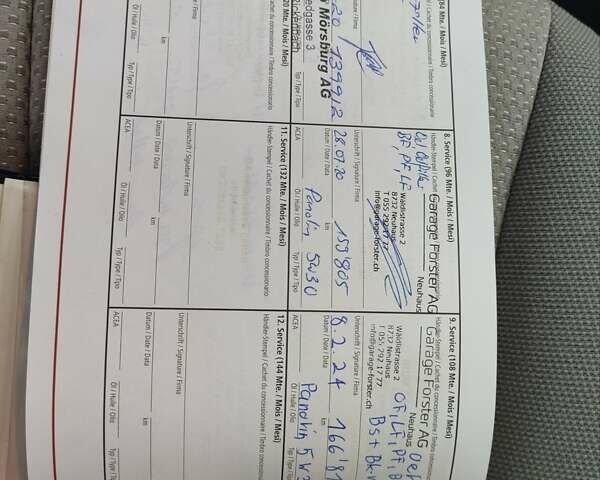 (84 Mte. / Mois / Mesi)
Händler-Stempel / Cachet du concessionnaire / Timbro concessionario
Unterschrift / Signature / Firma
139912
km
Mörsburg AG
edgasse 3
Typ / Type / Tipo
8. Service (96 Mte. / Mois / Mesi)
Händler-Stempel / Cachet
Garage Forster AG
Neuhaus
BF, PF, LF
Wäldlistrasse 2
8732 Neuhaus
T 055 292 17 77
info@garage-forster.ch
Unterschrift / Signature / Firma
28.07.20
159'805
Datum / Date / Data
km
Panolin 5W30
ACEA
Öl / Huile / Olio
Typ / Type / Tipo
9. Service (108 Mte. / Mois / Mesi)
Händler-Stempel / Cachet du concessionnaire / Timbro concessionario
Garage Forster AG
Neuhaus
Wäldlistrasse 2
8732 Neuhaus
T. 055. 292.17 77
info@garage-forster.ch
OF, LF, PF,
Bs +
Unterschrift / Signature / Firma
8.2.24
Datum / Date / Data
km
Panolin 5W3
ACEA
Öl / Huile / Olio
Typ / Type / Tipo
(120 Mte. / Mois / Mesi)
Händler-Stempel / Cachet du concessionnaire / Timbro concessionario
Unterschrift / Signature / Firma
km
Öl / Huile / Olio
Typ / Type / Tipo
11. Service (132 Mte. / Mois / Mesi)
Händler-Stempel / Cachet du concessionnaire / Timbro concessionario
Unterschrift / Signature / Firma
Datum / Date / Data
km
ACEA
Öl / Huile / Olio
Typ / Type / Tipo
12. Service (144 Mte. / Mois / Mesi)
Händler-Stempel / Cachet du concessionnaire / Timbro concessionario
Unterschrift / Signature / Firma
Datum / Date / Data
km
ACEA
Öl / Huile / Olio
Typ / Type / Tipo